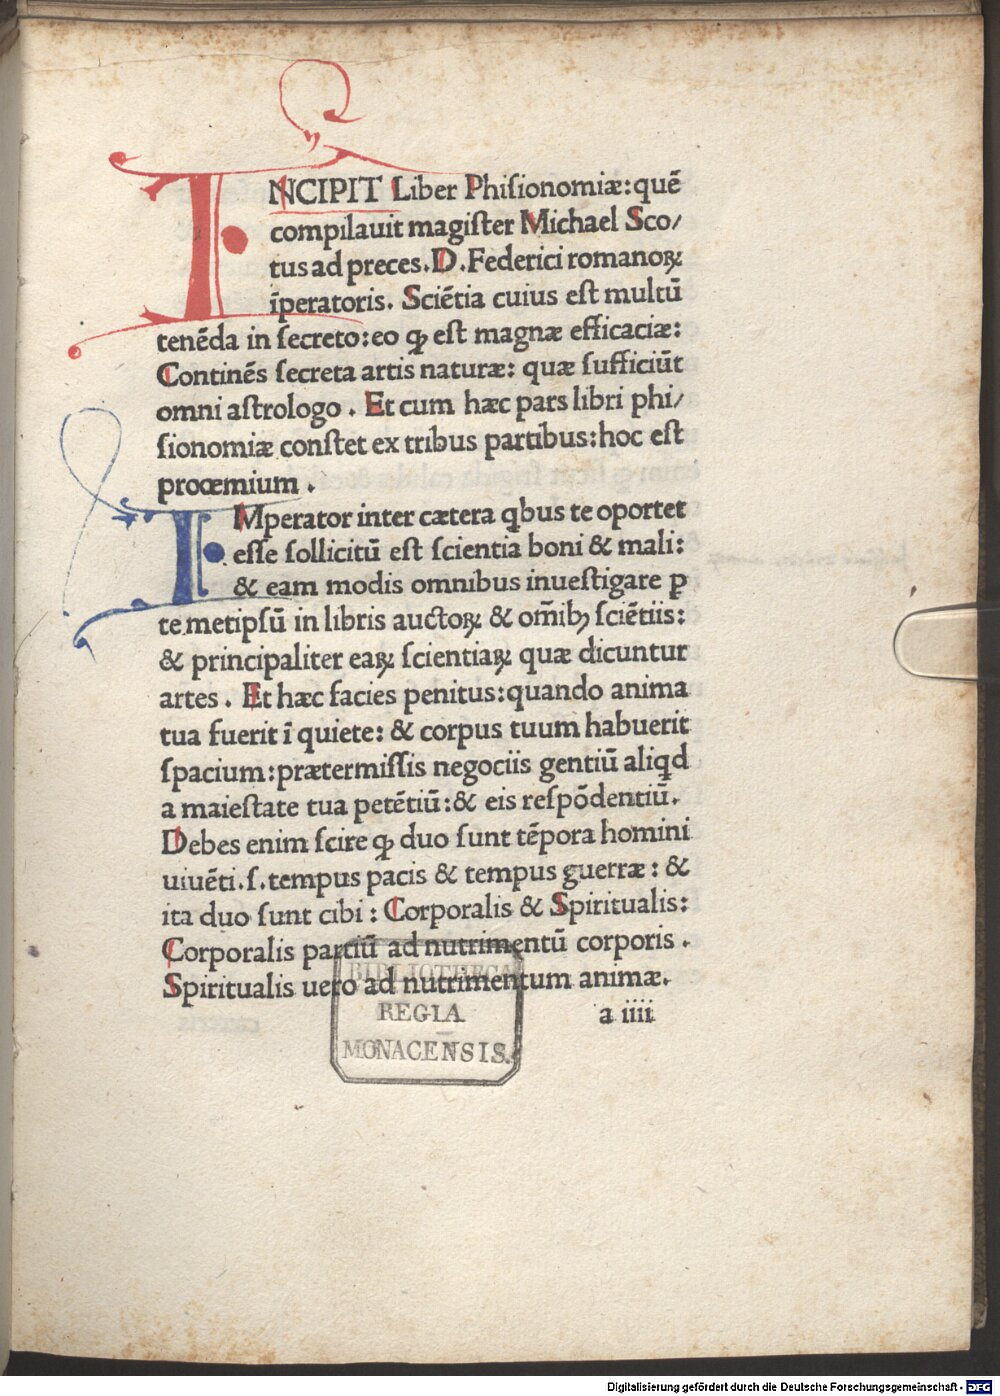 INCIPIT Liber Phiſionomiæ: quē
compilauit magiſter Michael Sco/
tus ad preces. D. Federici romanoꝝ
īperatoris. Sciētia cuius eſt multū
tenēda in ſecreto: eo ꝙ eſt magnæ efficaciæ:
Continēs ſecreta artis naturæ: quæ ſufficiūt
omni aſtrologo. Et cum hæc pars libri phi/
ſionomiæ conſtet ex tribus partibus: hoc eſt
proœmium.
IMperator inter cætera qbus te oportet
eſſe ſollicitū eſt ſcientia boni & mali:
& eam modis omnibus inueſtigare ꝑ
temetipſū in libris auctoꝝ & om̄ibꝫ ſciētiis:
& principaliter eaꝝ ſcientiaꝝ quæ dicuntur
artes. Et hæc facies penitus: quando anima
tua fuerit ī quiete: & corpus tuum habuerit
ſpacium: prætermiſſis negociis gentiū aliqd
a maieſtate tua petētiū: & eis reſpōdentiū.
Debes enim ſcire ꝙ duo ſunt tēpora homini
uiuēti. ſ. tempus pacis & tempus guerræ: &
ita duo ſunt cibi: Corporalis & Spiritualis:
Corporalis partiū ad nutrimentū corporis.
Spiritualis uero ad nutrimentum animæ.
a iiii
BIBLIOTHECA
REGIA
MONACENSIS.
Digitalisierung gefördert durch die Deutsche Forschungsgemeinschaft - DFG